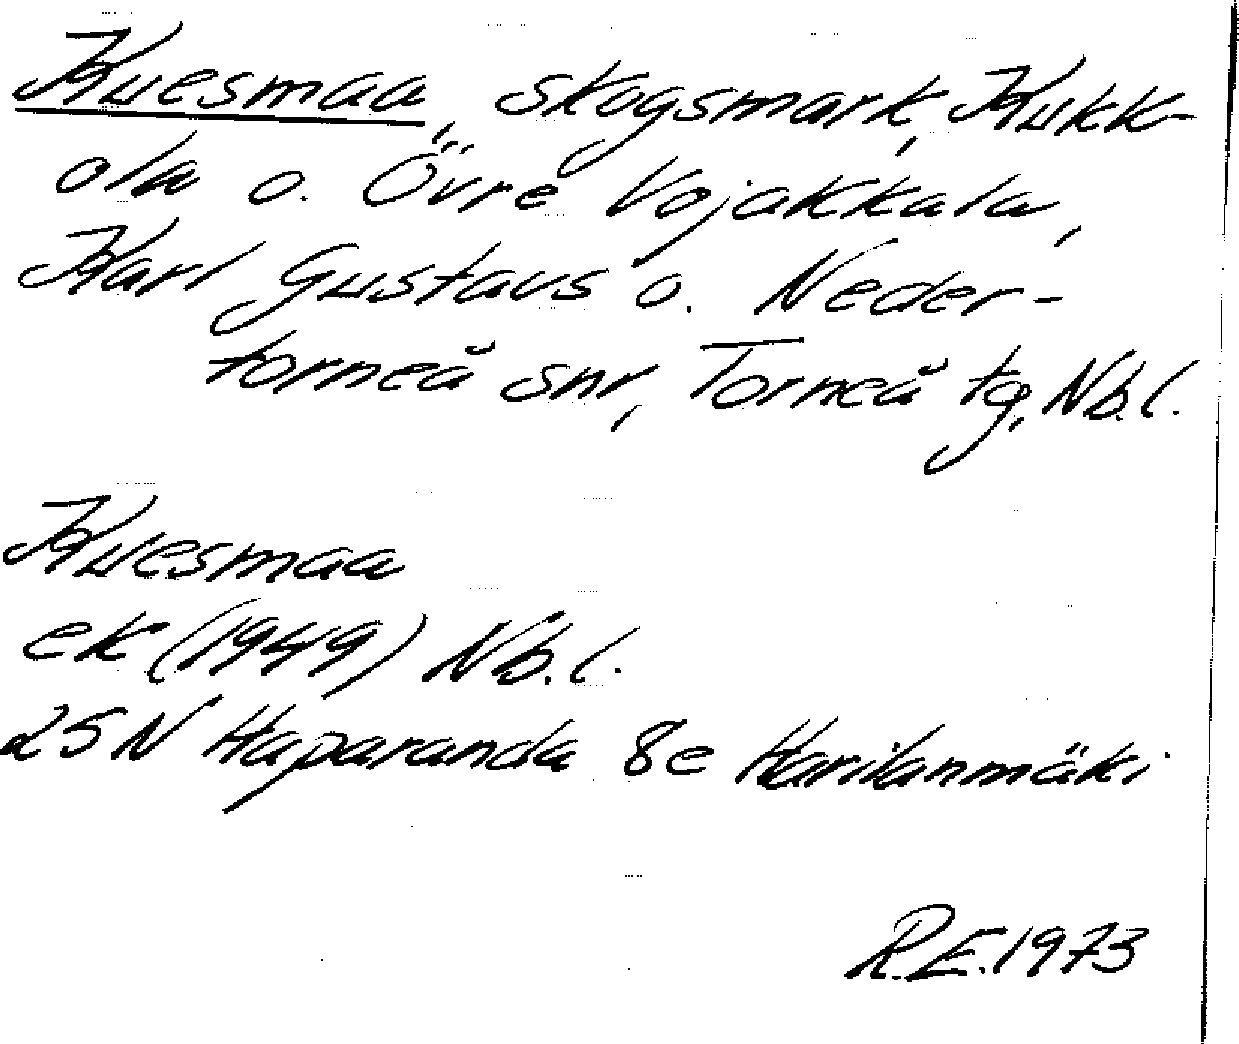 Kuesmaa, skogsmark, Kukk-
ola o. Övre Vojakkala,
Karl Gustavs o. Neder-
torneå snr, Torneå tg, Nb.l.
Kuesmaa
ek (1949) Nb.l.
25N Haparanda 8e Harilanmäki
R.E. 1973